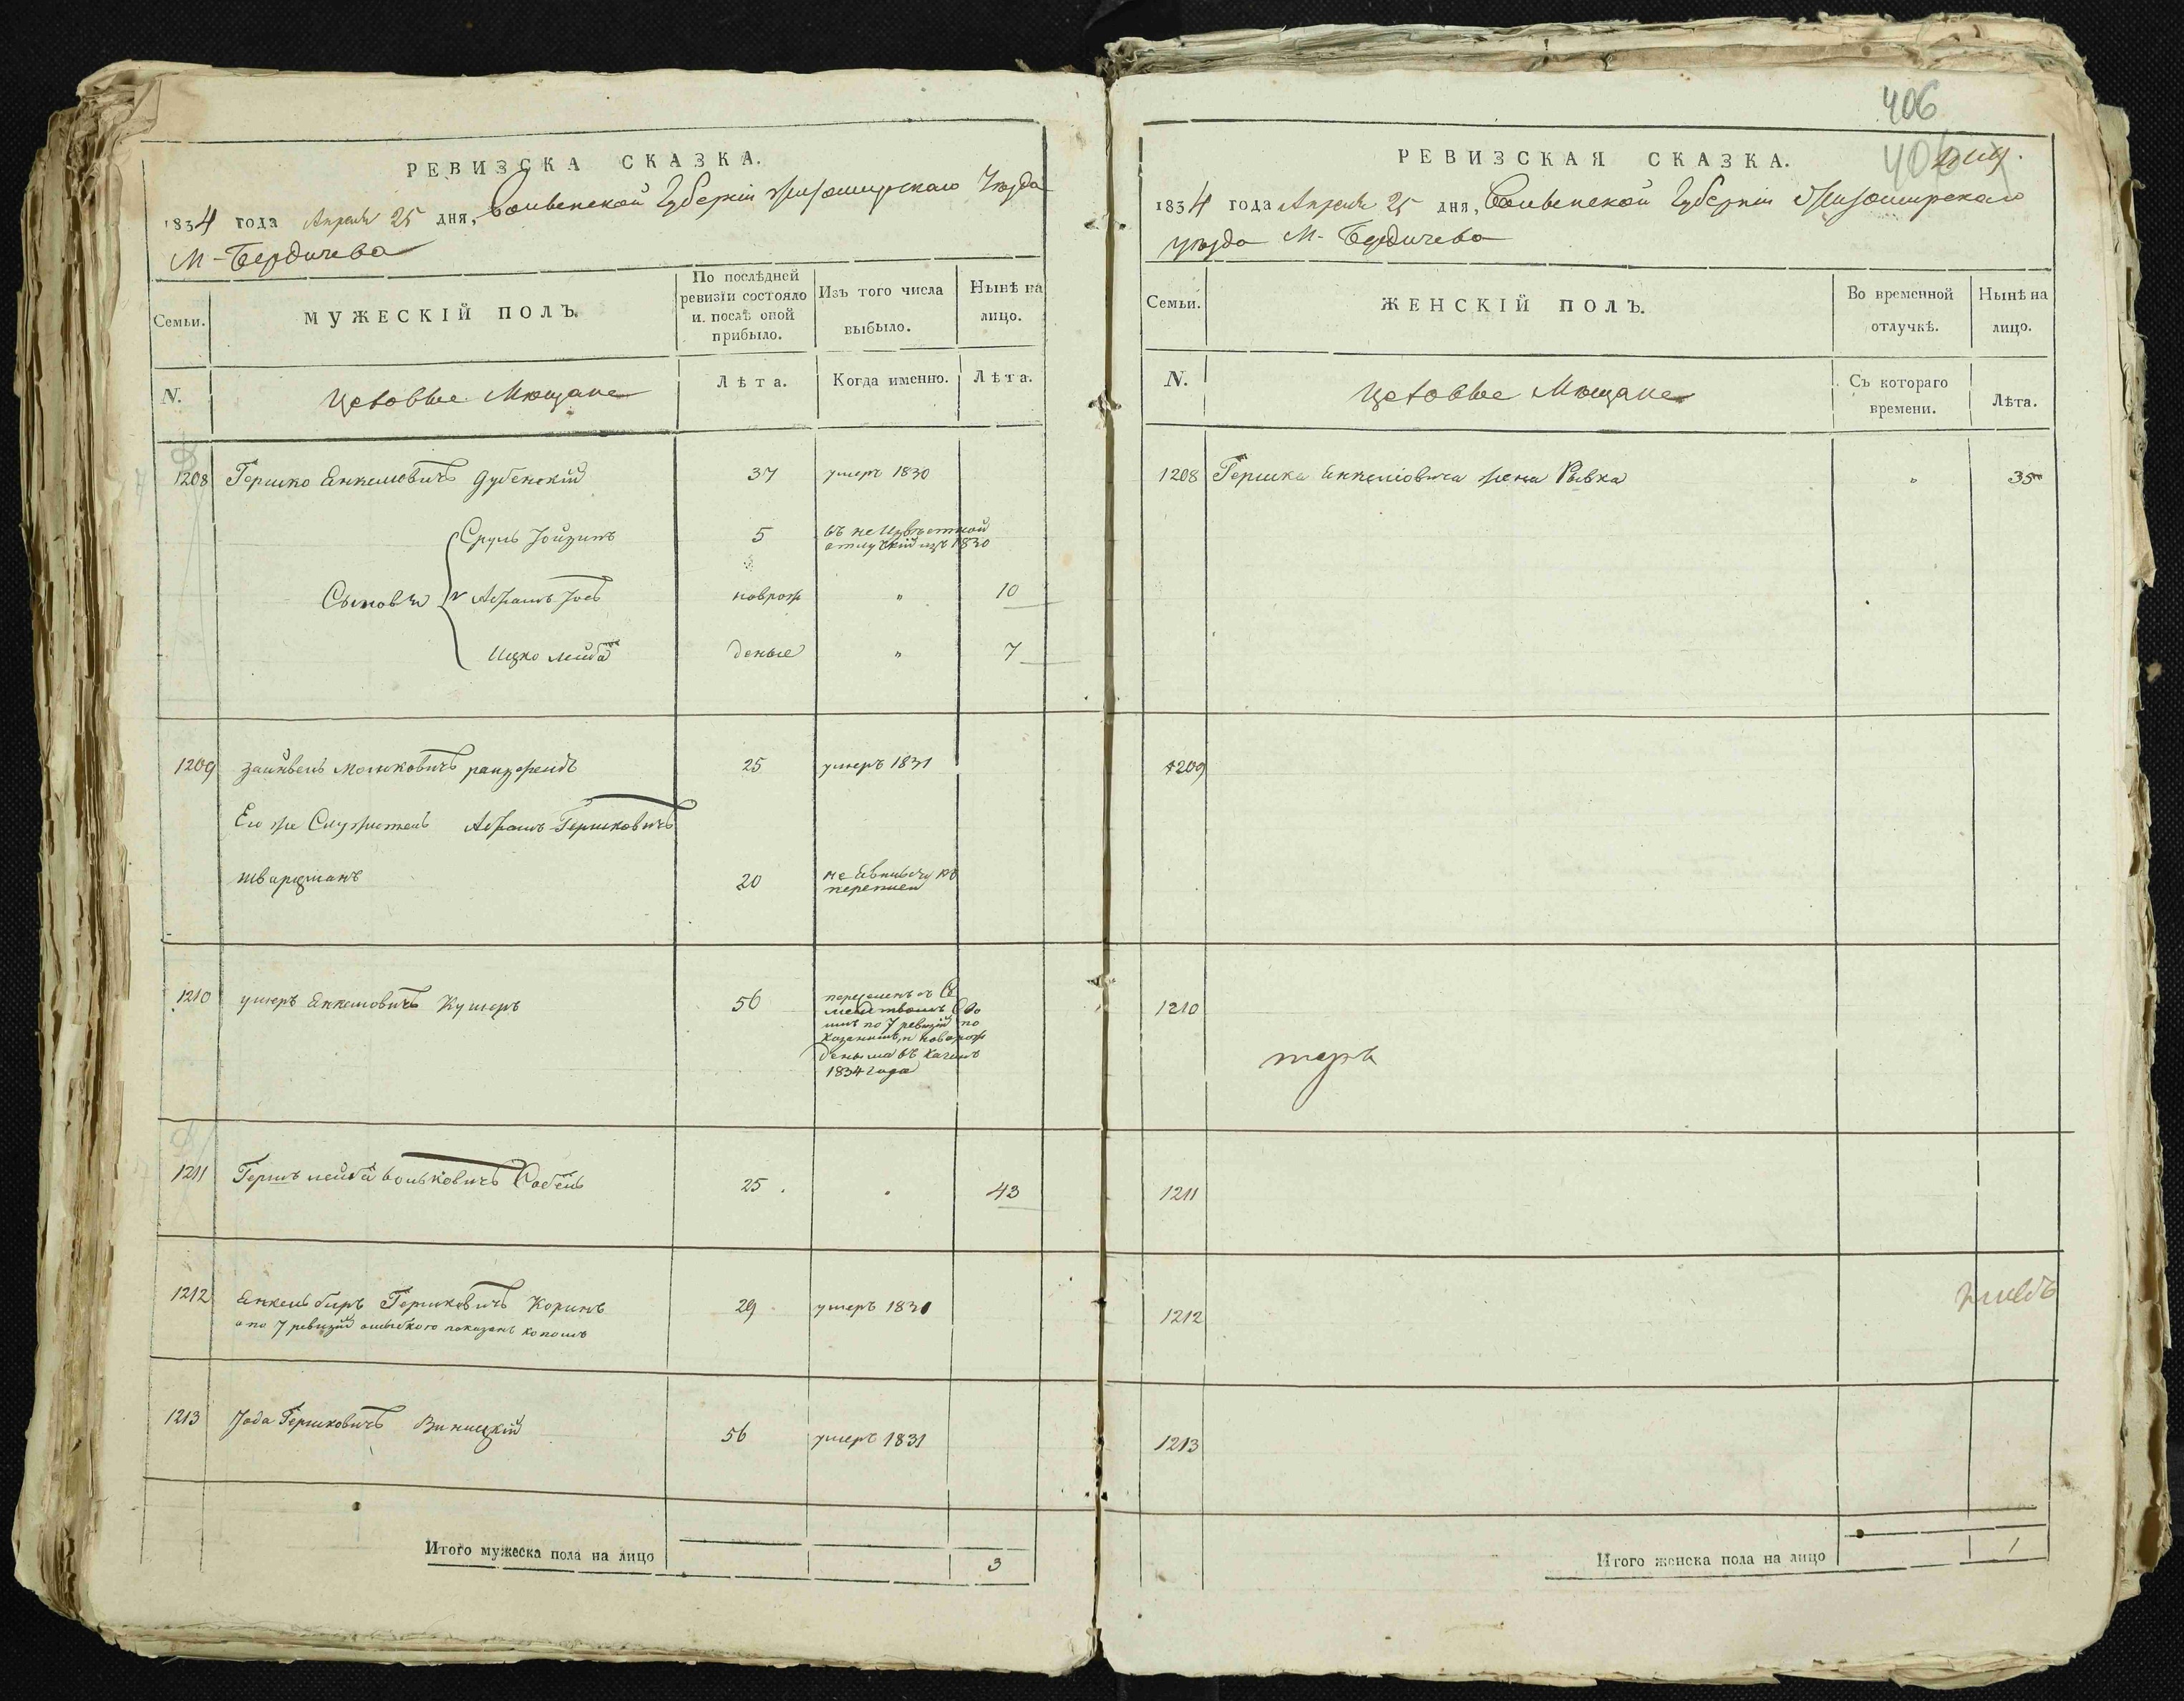 РЕВИЗСКА СКАЗКА.
1834 года Апреля 25 дня, Волынской Губернии Житомирскаго Уезда
М- Бердичева
Семьи.
МУЖЕСКІЙ ПОЛЪ.
По послѣдней
ревизіи состояло
и послѣ оной
прибыло.
Изъ того числа
выбыло.
Нынѣ на
лицо.
N.
Цеховые Мещане
Лѣта.
Когда именно.
Лѣта.
1208 Гершко Енкелювичъ Дубенскій 37 умеръ 1830
Сруль 5 въ неизвѣстной
изъ 1830
Сыновья Абрамъ Іосъ новрож „ 10
Ицко Лейба деные „ 7
1209 Зайнвель Мошковичъ 25 умеръ 1831
Его же Служитель Абрамъ Гершковичъ
шварцманъ 20 не явився къ
переписи
1210 Енкелювичъ Кушеръ 56
по 7 ревизіи по
казанимъ и новорож
деныма въ
1834 года
1211 Гершъ лейба Вольковичъ 25 . 43
1212 Енкель беръ Гершковичъ Коринъ 29 умеръ 1831
а по 7 ревизіи показанъ
1213 Іода Гершковичъ Виницкій 56 умеръ 1831
Итого мужеска пола на лицо 3
406
406
РЕВИЗСКАЯ СКАЗКА.
1834 года Апреля 25 дня, Волынской Губернии Житомирскаго
уезда М- Бердичева
Семьи.
ЖЕНСКІЙ ПОЛЪ.
Во временной
отлучкѣ.
Нынѣ на
лицо.
N.
Цеховые Мещане
Съ котораго
времени.
Лѣта.
1208 Гершка Енкелювича жена Рывка „ 35
1209
1210
1211
1212
1213
Итого женска пола на лицо 1